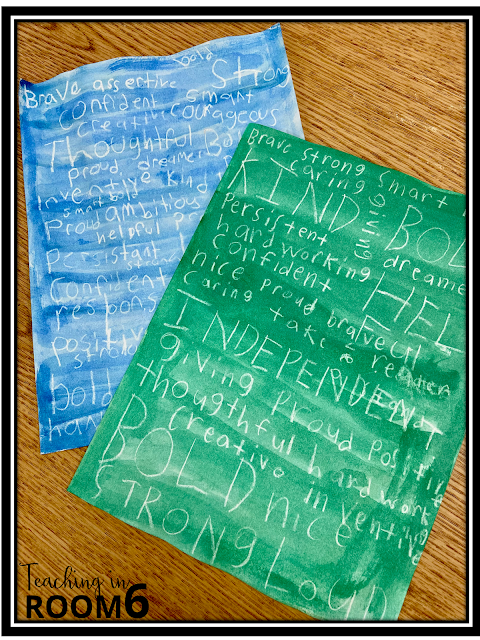 bold
Brave assertive Strong
Confident smart
creative courageous
Thoughtful
proud dreamer Bo
Inventive Kind
smart bold
Proud ambitious
helpful pr
Persistant
strong
Confident
respons
positiv
strong
bold
Brave strong smart
caring
KIND BOL
Persistent dreame
hardworking
Confident HEL
nice proud brave
caring take a
INDEPENDENT
giving proud positive
thougthful hard work
creative inventive
BOLD nice
STRONG LOUD
Teaching in
ROOM6